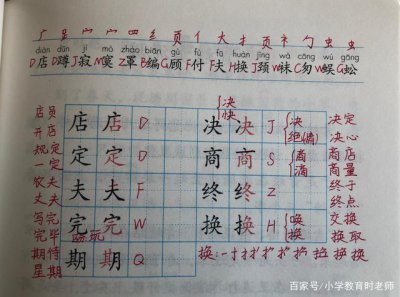 广 𧾷 宀 宀 罒 纟 页 亻 大 扌 页 衤 勹 虫 虫
diàn dūn jì mò zhào biān gù fù fu huàn jǐng wà cōng wú gōng
D店 D蹲 J寂 M寞 Z罩 B编 G顾 F付 F夫 H换 J颈 W袜 C匆 W蜈 G蚣
决
快
店员 店 店 D 决 决 J 决 决定
开店 绝(情) 决心
规定 定 定 D 商 商 S 商 商店
一定 滴 商量
农夫 夫 夫 F 终 终 Z 终于
丈夫 终点
写完 完 完 W 换 换 H 唤 交换
完毕 玩 换 换取
期待 期 期 Q 换:
星期
百家号/小学教育时老师